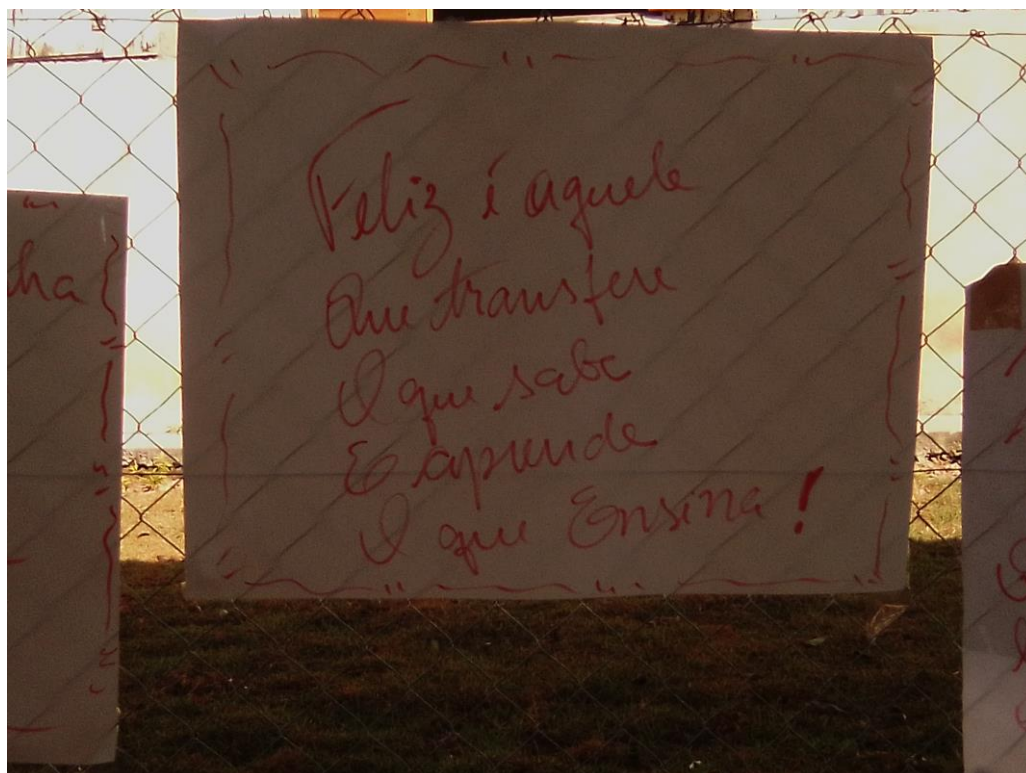 ha
Feliz é aquele
Que transfere
O que sabe
E aprende
O que Ensina!